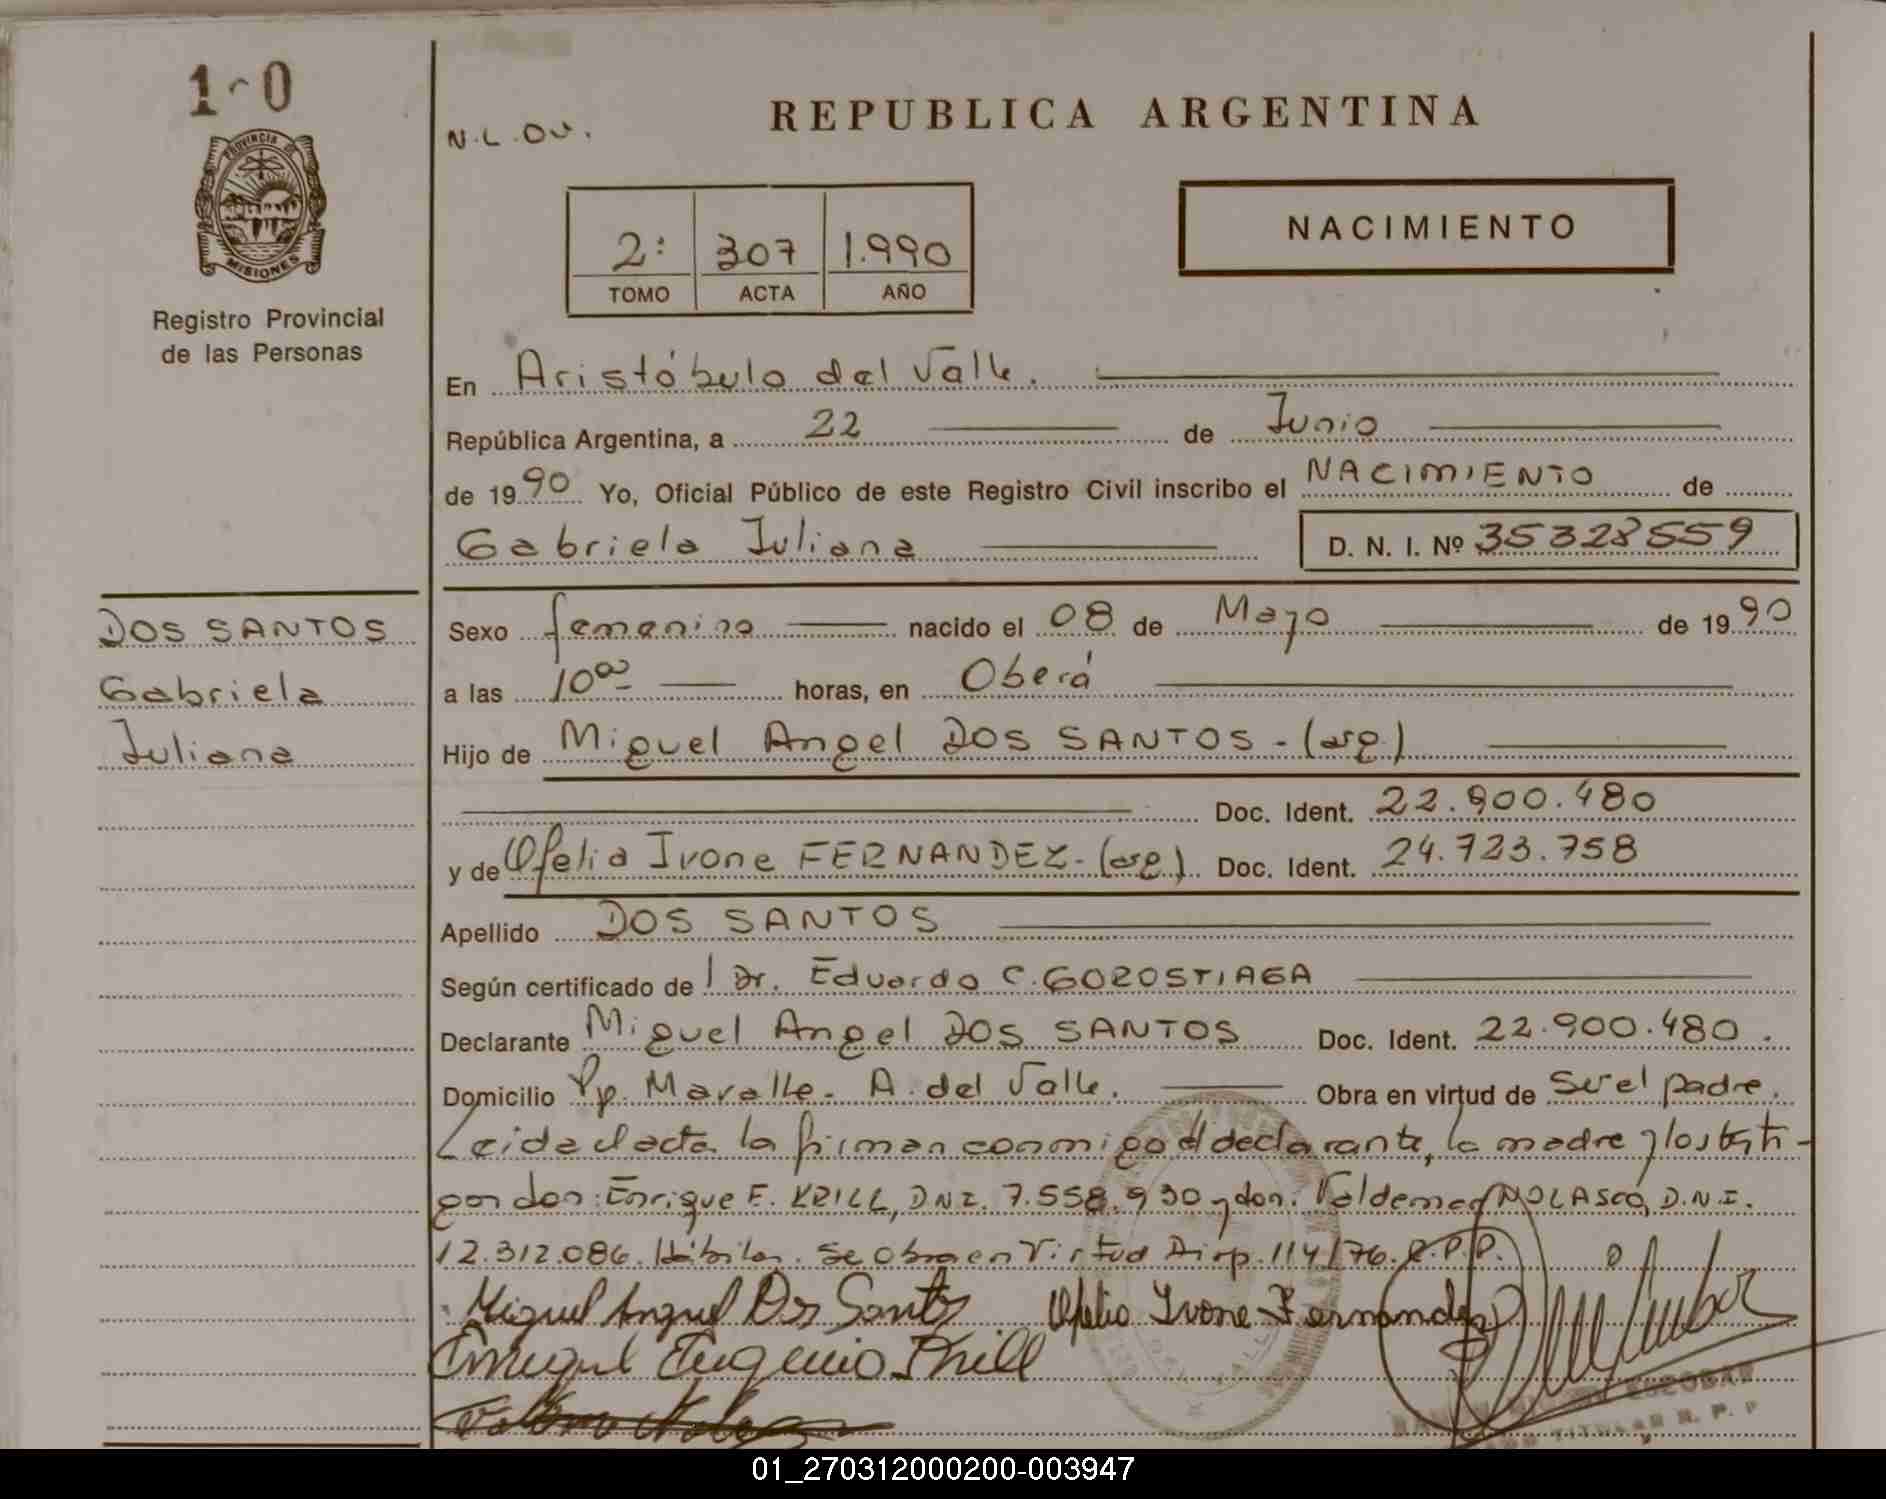 1 0
PROVINCIA DE
MISIONES
Registro Provincial
de las Personas
DOS SANTOS
Gabriela
Juliana
N.L.OV.
REPUBLICA ARGENTINA
2: 307 1.990
TOMO ACTA AÑO
NACIMIENTO
En Aristóbulo del Valle.
República Argentina, a 22 de Junio
de 1990 Yo, Oficial Público de este Registro Civil inscribo el NACIMIENTO de
Gabriela Juliana D. N. I. Nº 35328559
Sexo femenino nacido el 08 de Mayo de 1990
a las 10⁰⁰ horas, en Oberá
Hijo de Miguel Angel DOS SANTOS - (arg.)
Doc. Ident. 22.900.480
y de Ofelia Ivone FERNANDEZ - (arg.) Doc. Ident. 24.723.758
Apellido DOS SANTOS
Según certificado de l Dr. Eduardo C. GOROSTIAGA
Declarante Miguel Angel DOS SANTOS Doc. Ident. 22.900.480.
Domicilio Pp. Maralle - A. del Valle. Obra en virtud de Ser el padre.
Leida el acta la firman conmigo el declarante, la madre y los testi-
gos don: Enrique E. KRILL, D.N.I. 7.558.930 y don. Valdemar NOLASCO, D.N.I.
12.312.086. Hábiles. Se obra en Virtud Disp. 114/76. R.P.P.
Miguel Angel Dos Santos Ofelia Ivone Fernandez
Enrique Eugenio Krill
ESCOBAR
TITULAR R. P. P
01_270312000200-003947